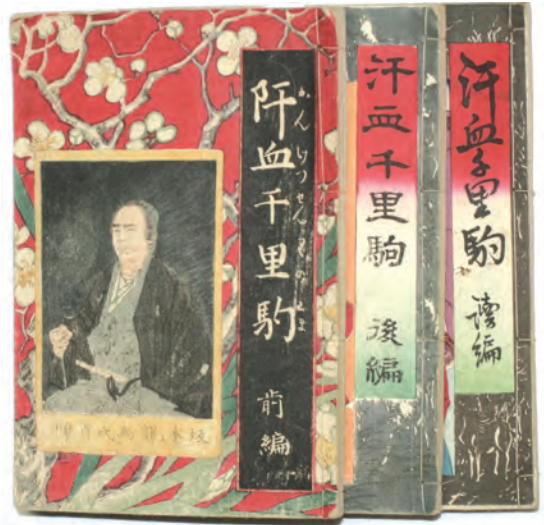 汗血千里駒
かんけつせんりのこま
前編
坂本龍馬氏肖像
汗血千里駒
後編
汗血千里駒
続編